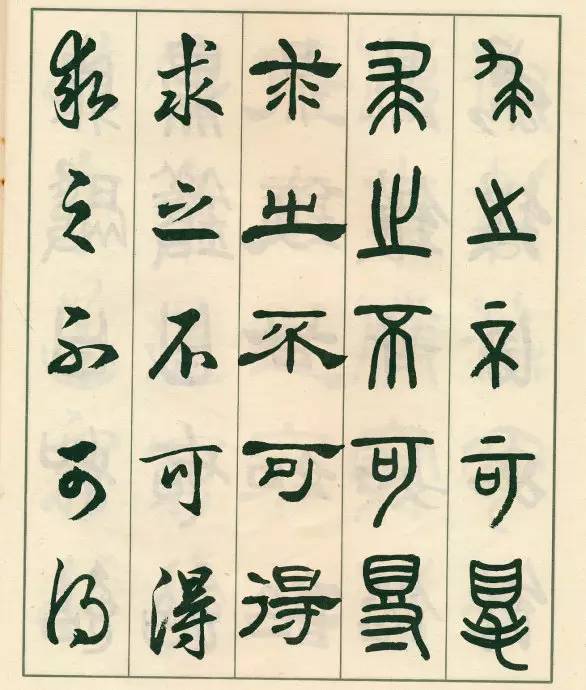 求之不可得
求之不可得
求之不可得
求之不可得
求之不可得